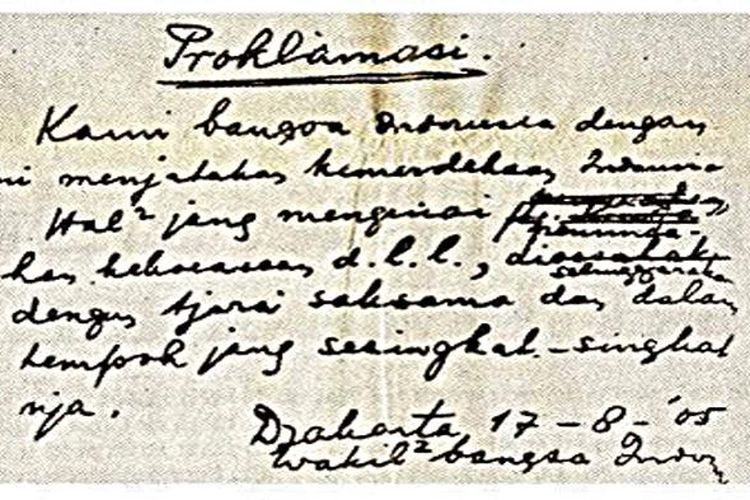 Proklamasi.
Kami bangsa Indonesia dengan
ni menjatakan kemerdekaan Indonesia
Hal² jang mengenai
peminda-
han kekoeasaan d.l.l., diselenggarakan
dengan tjara saksama dan dalam
tempoh jang sesingkat-singkat
nja.
Djakarta 17 - 8 - '05
Wakil² bangsa Indon